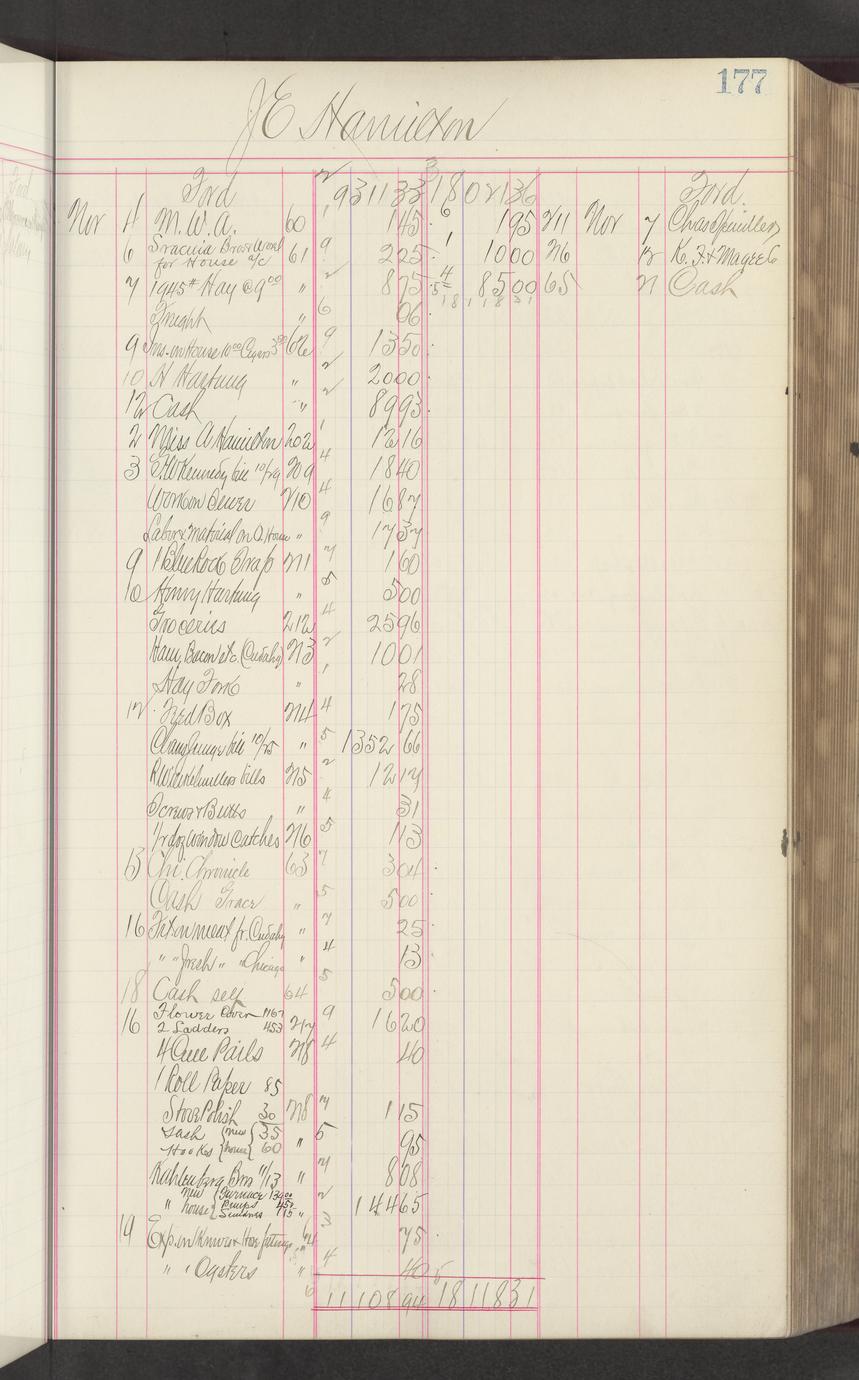 177
J E Hamilton
Ford 9311 33 18 021 36 Ford.
Nov 4 M. W. A. 60 1 45 6 1 95 211 Nov 7 Chas
6 for House a/c 61 9 2 25 1 10 00 12 K. F. & Magee Co
7 1945# Hay @ 9 00 " 2 8 75 4 85 00 65 21 Cash
Freight " 6 06
9 Ins. on House 10 00 Cigars 3 50 62 9 13 50
10 H Hartung " 2 20 00
12 Cash " 2 89 93
2 Miss A Hamilton 202 1 12 16
3 E. W. Kennedy bill 10/29 209 4 18 40
Work on Sewer 210 4 16 87
Labor & Material on O. House " 9 17 37
9 1 Blue Rock Trap 211 7 1 60
10 Henry Hartung " 5 5 00
Groceries 212 4 25 96
Ham, Bacon etc. (Cudahy) 213 2 10 01
Hay Fork " 1 28
12 Feed Box 214 4 1 75
bill 10/25 " 5 1352 66
bills 215 2 12 17
Screws & Butts " 4 31
1/2 doz window Catches 216 5 1 13
13 Chi. Chronicle 63 7 3 04
Cash Grace " 5 5 00
16 Frt. on meat fr. Cudahy " 7 25
" " fresh " " Chicago " 4 13
18 Cash self 64 5 5 00
16 Flower Cover 11 67
2 Ladders 4 53 217 9 16 20
4 Pails 218 4 40
1 Roll Paper 85
Stove Polish 30 218 7 1 15
Sash { new } 35
Hooks { house } 60 " 5 95
Kahlenberg Bros 11/13 " 7 8 08
" new house { Furnace 139 00
Pumps 4 50
Sundries 1 15 " 2 144 65
19 Exp. on Knives & Hose fittings 64 3 75
" " Oysters " 4 40
11 108 94 18 118 31